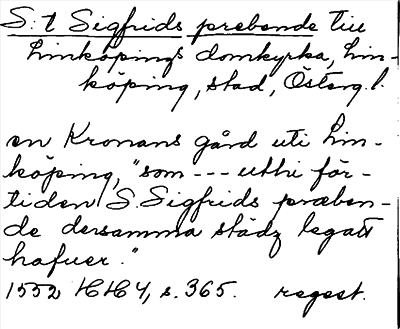 S:t Sigfrids prebende till
Linköpings domkyrka, Lin-
köping, stad, Österg.l.
en Kronans gård uti Lin-
köping, "som --- uthi för-
tiden S. Sigfrids præben-
de dersamma städz legatt
hafuer."
1552 HH 4, s. 365. regest.